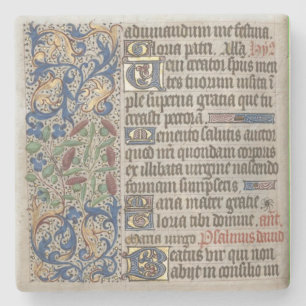 adiuuandum me festina
Gloria patri. Alla. hỹ9
Veni creator spus men
tes tuorum visita i
ple superna gracia que tu
creasti pectora
Memento salutis auctor
quod nr̃i quondam corporis
ex illibata virgine nascendo
formam sumpseris
Maria mater gracie
Gloria tibi domine, ant.
Maria virgo Psalmus dauid
Beatus vir qui non
abijt in consilio im